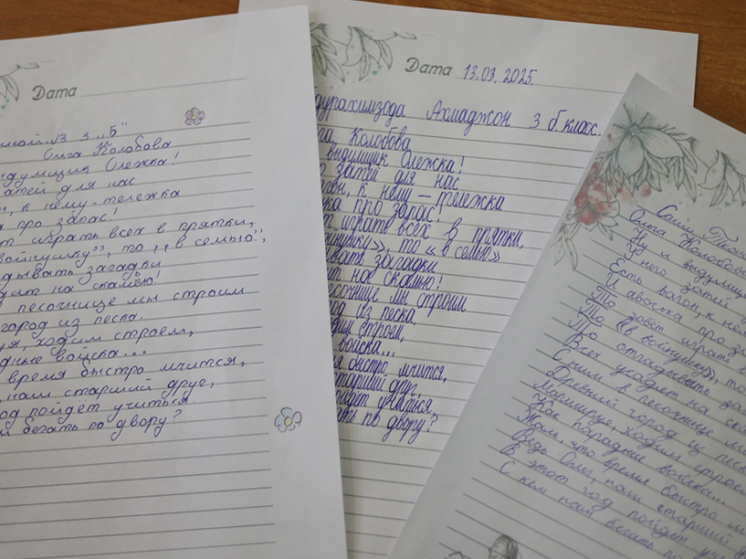 Дата
3 „Б"
Ольга Колобова
Олежка!
затей для нас
к нему-тележка
про запас!
играть всех в прятки,
войнушку", то „в семью",
загадки
на скамью!
песочнице мы строим
город из песка.
ходим строем,
войска...
время быстро мчится,
наш старший друг,
год пойдёт учиться
бегать по двору?
Дата 13.03.2025.
Ахмаджон 3 б класс.
Колобова
выдумщик Олежка!
затей для нас
к нему — тележка
про запас!
играть всех в прятки,
то «в семью»
загадки
нас скамью!
песочнице мы строим
из песка,
строем,
войска...
быстро мчится,
старший друг,
учиться,
по двору?
Ольга Колобова
Ну и выдумщик
У него затей
Есть вагон, к нему
И авоська про запас
То зовёт играть
То «в войнушку», то
То отгадывать
Всех усадит на
С ним в песочнице мы
Древний город из
Маршируя, ходим строем
Как парадные войска
Жаль, что время быстро
Ведь Олег, наш старший
В этот год пойдёт
С кем нам бегать